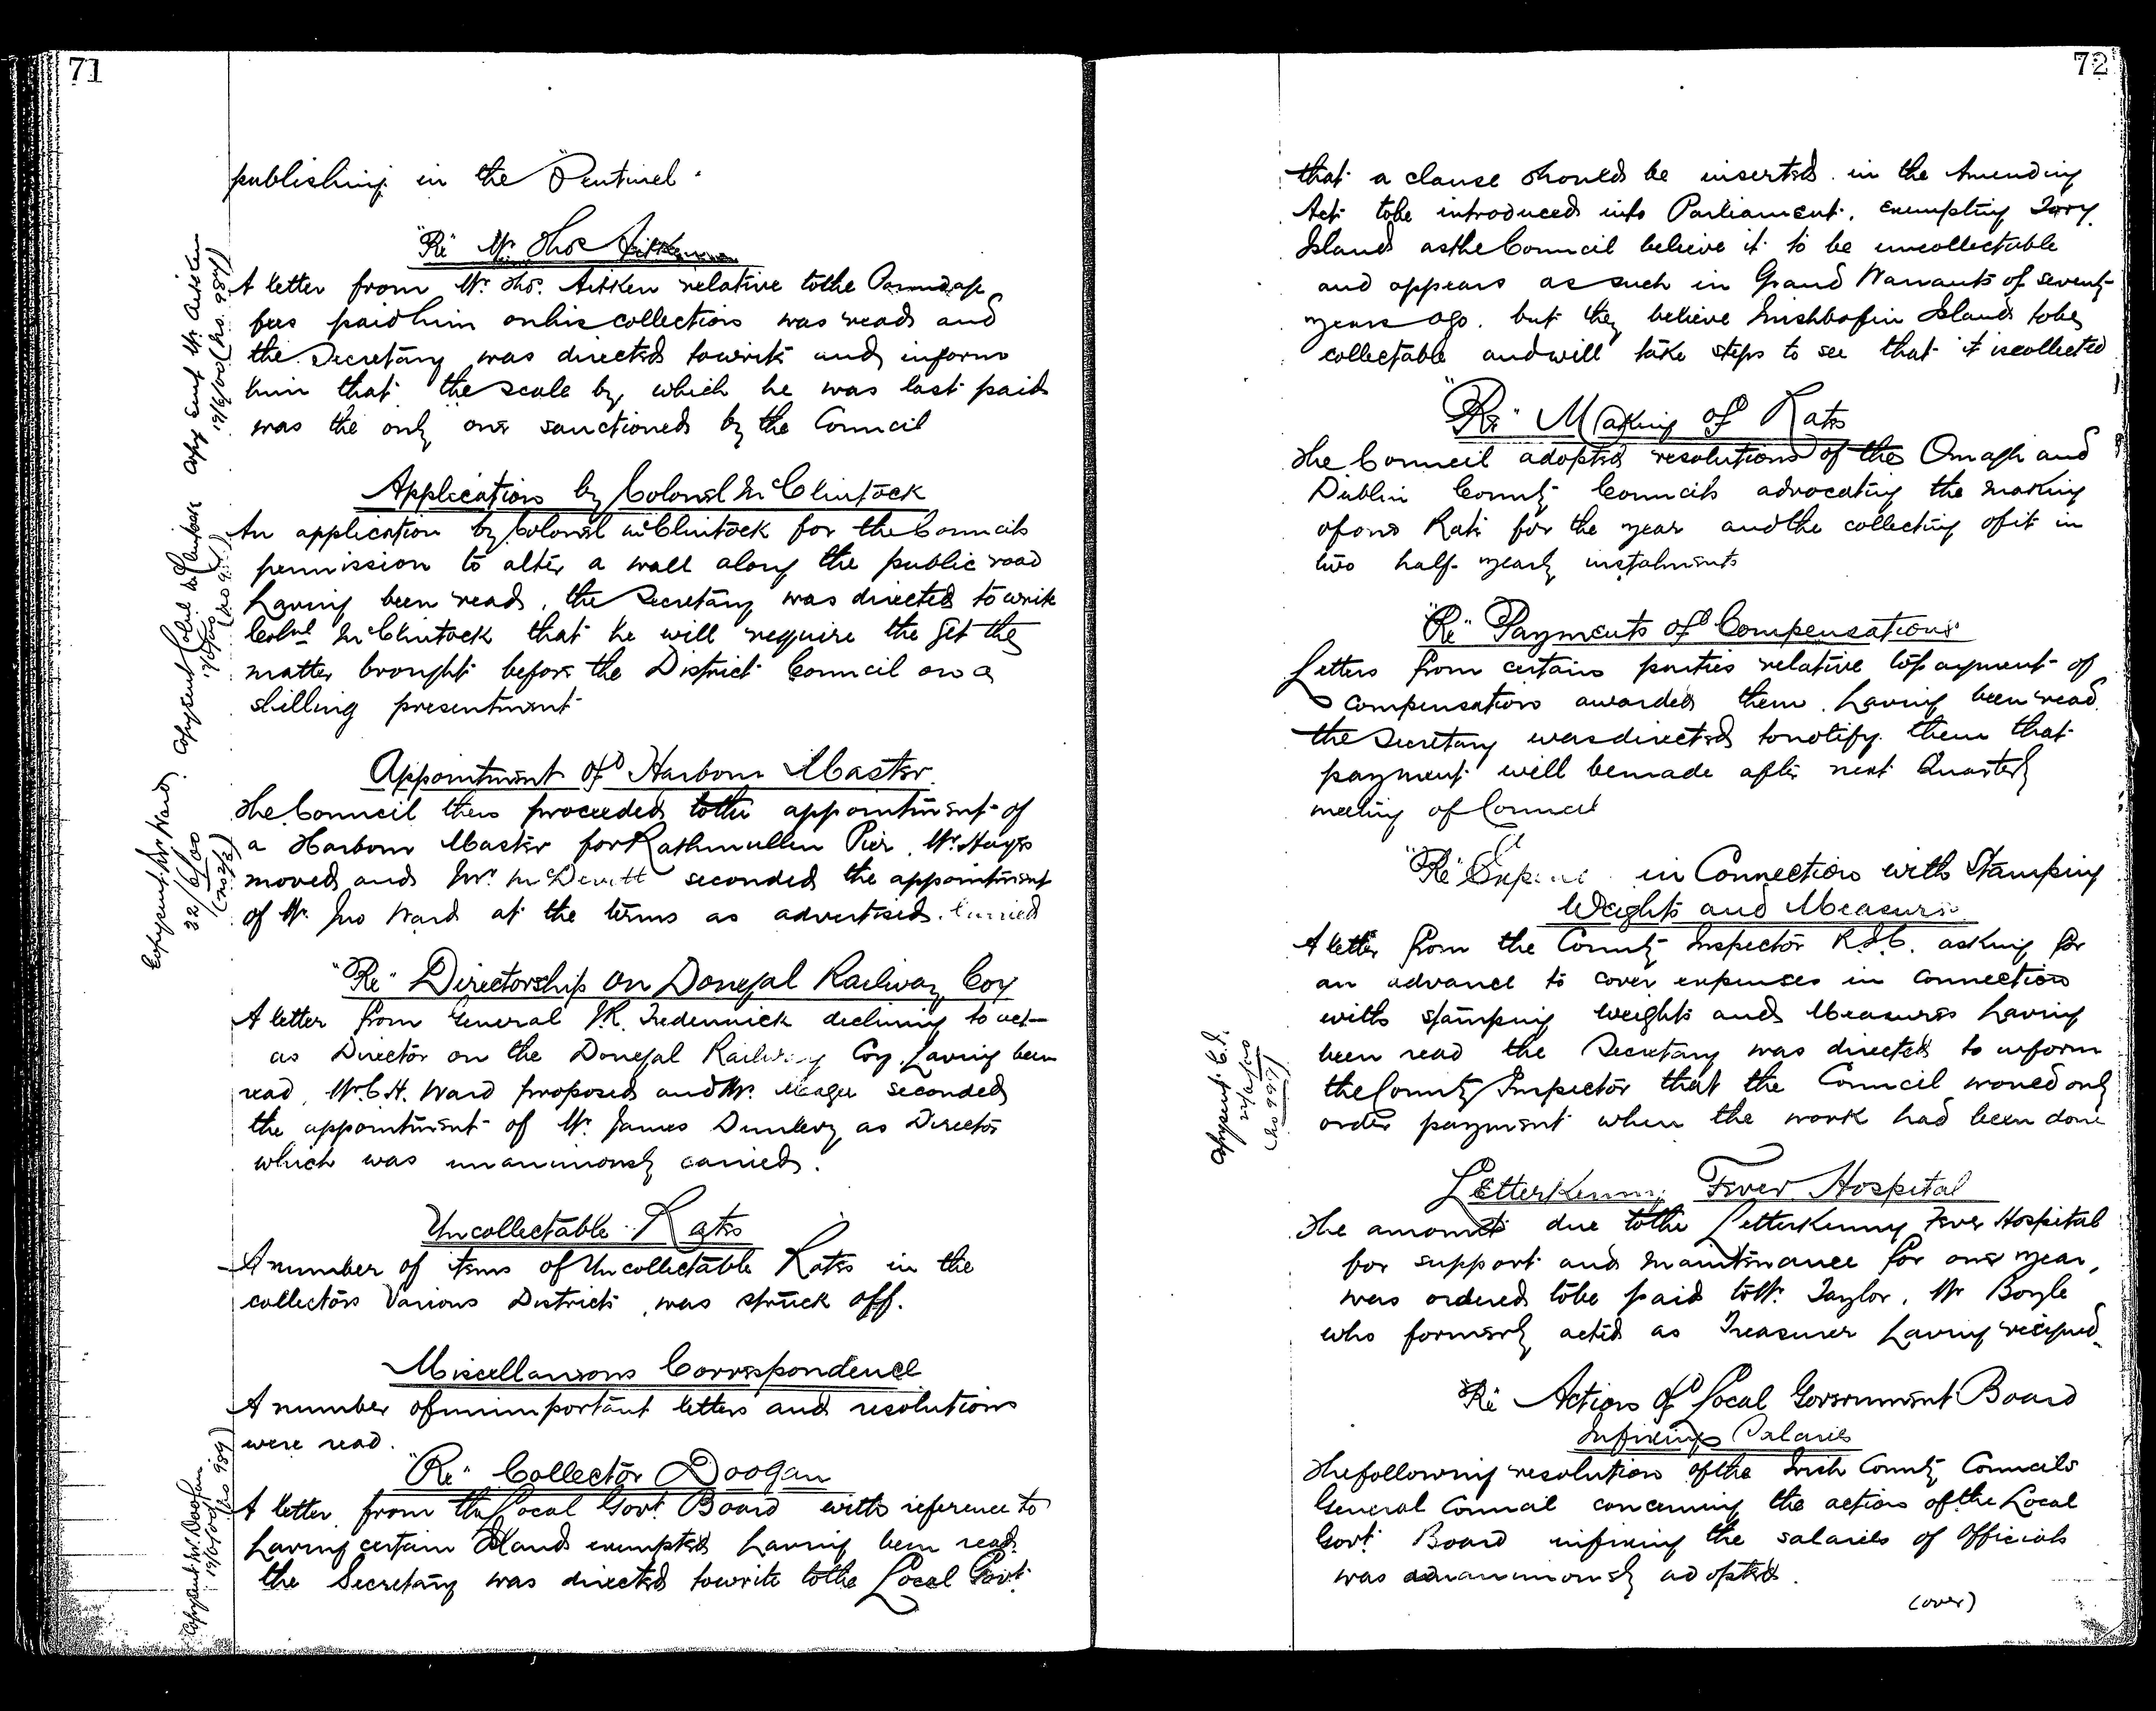 71
publishing in the "Sentinel"
"Re" Mr Thos Aitken
A letter from Mr. Thos. Aitken relative to the Poundage
fees paid him on his collection was read and
the Secretary was directed to write and inform
him that the scale by which he was last paid
was the only one sanctioned by the Council
Copy sent Mr Aitken
19/6/00 (No. 987)
Application by Colonel McClintock
An application by Colonel McClintock for the Councils
permission to alter a wall along the public road
having been read, the Secretary was directed to write
Colnl McClintock that he will require the get the
matter brought before the District Council on a
shilling presentment
Copy sent Colnl McClintock
Appointment of Harbour Master
The Council then proceeded to the appointment of
a Harbour Master for Rathmullen Pier. Mr. Hayes
moved and Mr. McDevitt seconded the appointment
of Mr. Jno Ward at the terms as advertised. Carried
Copy sent Mr Ward
22/6/00
"Re" Directorship on Donegal Railway Coy
A letter from General J.R. Tredennick declining to act
as Director on the Donegal Railway Coy. having been
read, Mr. C.H. Ward proposed and Mr. Meagee seconded
the appointment of Mr. James Dunlevy as Director
which was unanimously carried.
Uncollectable Rates
A number of items of Uncollectable Rates in the
collectors Various Districts, was struck off.
Miscellaneous Correspondence
A number of unimportant letters and resolutions
were read.
"Re" Collector Doogan
A letter from the Local Govt. Board with reference to
having certain Islands exempted having been read
the Secretary was directed to write to the Local Govt.
Copy sent Mr. Doogan
19/6/00 (No 989)
72
that a clause should be inserted in the Amending
Act to be introduced into Parliament, exempting Tory
Island as the Council believe it to be uncollectable
and appears as such in Grand Warrants of seventy
years ago. but they believe Inishbofin Island to be
collectable and will take steps to see that it is collected
"Re" Making of Rates
The Council adopted resolutions of the Omagh and
Dublin County Councils advocating the making
of one Rate for the year and the collecting of it in
two half-yearly instalments
"Re" Payments of Compensations
Letters from certain parties relative to payment of
compensation awarded them having been read
the Secretary was directed to notify them that
payment will be made after next Quarterly
meeting of Council
"Re" in Connection with Stamping
Weights and Measures
A letter from the County Inspector R.I.C. asking for
an advance to cover expenses in connection
with stamping weights and Measures having
been read the Secretary was directed to inform
the County Inspector that the Council would only
order payment when the work had been done
Copy sent C.I.
22/6/00
(No 999)
Letterkenny Fever Hospital
The amount due to the Letterkenny Fever Hospital
for support and maintenance for one year,
was ordered to be paid to Mr. Taylor, Mr Boyle
who formerly acted as Treasurer having resigned
"Re" Action of Local Government Board
In fixing Salaries
The following resolution of the Irish County Councils
General Council concerning the action of the Local
Govt. Board in fixing the salaries of Officials
was unanimously adopted.
(over)